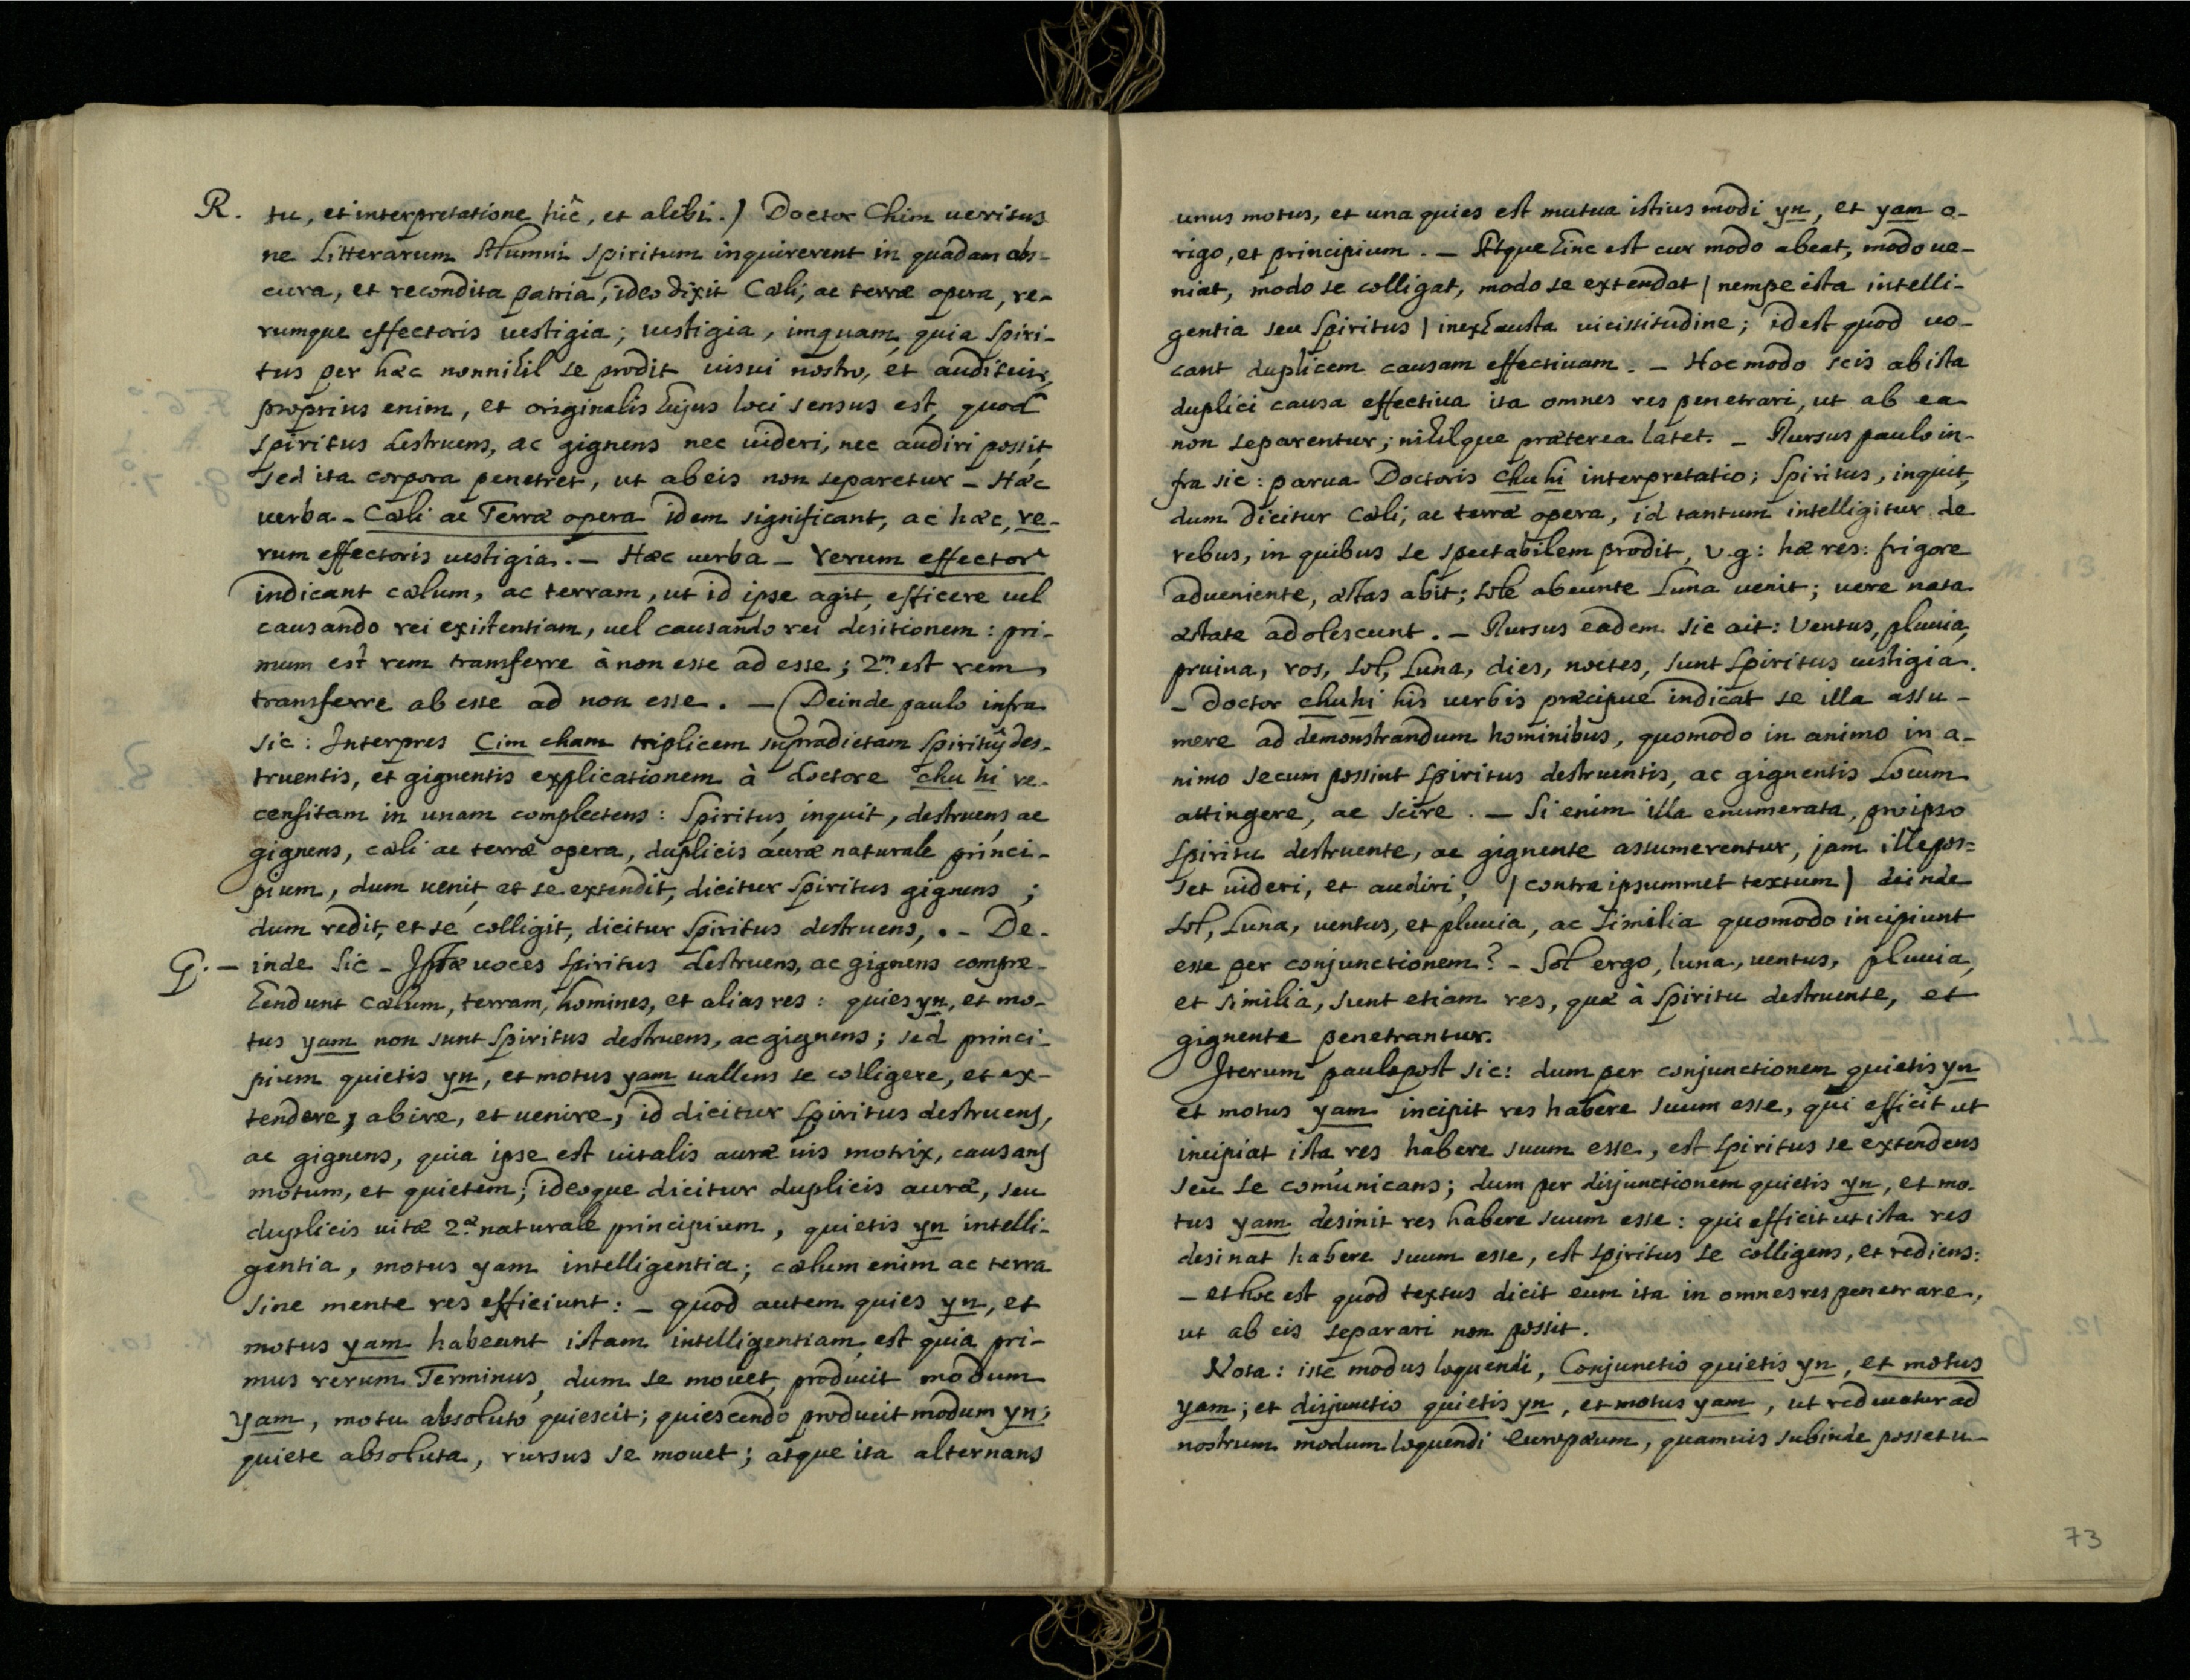 R. tu, et interpretatione hîc, et alibi.) Doctor Chim ueritus
ne Litterarum Alumni spiritum inquirerent in quadam obs-
cura, et recondita patria, ideo dixit Cæli, ac terræ opera, re-
rumque effectoris uestigia; uestigia, imquam, quia spiri-
tus per hæc nonnihil se prodit uisui nostro, et auditui,
proprius enim, et originalis hujus loci sensus est, quod
spiritus destruens, ac gignens nec uideri, nec audiri possit,
sed ita corpora penetret, ut ab eis non separetur – Hæc
uerba – Cæli ac Terræ opera idem significant, ac hæc, re-
rum effectoris uestigia. – Hæc uerba – rerum effector
indicant cælum, ac terram, ut id ipse agit, efficere uel
causando rei existentiam, uel causando rei desitionem: pri-
mum est rem transferre à non esse ad esse; 2.m est rem
transferre ab esse ad non esse. – (Deinde paulo infra
sic: Interpres Cim cham triplicem supradictam spiritûs des-
truentis, et gignentis explicationem à doctore chu hi re-
censitam in unam complectens: Spiritus, inquit, destruens ac
gignens, cæli ac terræ opera, duplicis auræ naturale princi-
pium, dum uenit, et se extendit, dicitur spiritus gignens;
dum redit, et se colligit, dicitur spiritus destruens, . – De-
G. – inde sic – Istæ uoces spiritus destruens, ac gignens compre-
hendunt cælum, terram, homines, et alias res: quies yn, et mo-
tus yam non sunt spiritus destruens, ac gignens; sed princi-
pium quietis yn, et motus yam uallens se colligere, et ex-
tendere, abire, et uenire, id dicitur spiritus destruens,
ac gignens, quia ipse est uitalis auræ uis motrix, causans
motum, et quietem; ideoque dicitur duplicis auræ, seu
duplicis uitæ 2.æ naturale principium, quietis yn intelli-
gentia, motus yam intelligentia; cælum enim ac terra
sine mente res efficiunt: – quod autem quies yn, et
motus yam habeant istam intelligentiam, est quia pri-
mus rerum Terminus, dum se mouet, producit modum
yam, motu absoluto quiescit; quiescendo producit modum yn;
quiete absoluta, rursus se mouet; atque ita alternans
unus motus, et una quies est mutua istius modi yn, et yam o-
rigo, et principium. – Atque hinc est cur modo abeat, modo ue-
niat, modo se colligat, modo se extendat / nempe ista intelli-
gentia seu spiritus / inexhausta uicissitudine; id est quod uo-
cant duplicem causam effectiuam. – Hoc modo scis ab ista
duplici causa effectiua ita omnes res penetrari, ut ab ea
non separentur; nihilque præterea latet. – Rursus paulo in-
fra sic: parua Doctoris chu hi interpretatio; Spiritus, inquit,
dum dicitur Cæli, ac terræ opera, id tantum intelligitur de
rebus, in quibus se spectabilem prodit, v.g: hæ res: frigore
adueniente, æstas abit; sole abeunte Luna uenit; uere nata
æstate adolescunt. – Rursus eadem sic ait: Ventus, pluuia,
pruina, ros, sol, Luna, dies, noctes, sunt spiritus uestigia.
– Doctor chu hi his uerbis præcipue indicat se illa assu-
mere ad demonstrandum hominibus, quomodo in animo in a-
nimo secum possint spiritus destruentis, ac gignentis Locum
attingere, ac scire. – Si enim illa enumerata, pro ipso
spiritu destruente, ac gignente assumerentur, jam ille pos=
set uideri, et audiri, / contra ipsummet textum / deinde
sol, Luna, uentus, et pluuia, ac similia quomodo incipiunt
esse per conjunctionem? – Sol ergo, luna, uentus, pluuia,
et similia, sunt etiam res, quæ à spiritu destruente, et
gignente penetrantur.
Iterum paulo post sic: dum per conjunctionem quietis yn
et motus yam incipit res habere suum esse, qui efficit ut
incipiat ista res habere suum esse, est spiritus se extendens
seu se comunicans; dum per disjunctionem quietis yn, et mo-
tus yam desinit res habere suum esse: qui efficit ut ista res
desinat habere suum esse, est spiritus se colligens, et rediens:
– et hoc est quod textus dicit eum ita in omnes res penetrare,
ut ab eis separari non possit.
Nota: iste modus loquendi, Conjunctio quietis yn, et motus
yam; et disjunctio quietis yn, et motus yam, ut reducatur ad
nostrum modum loquendi Europæum, quamuis subinde posset u-
73